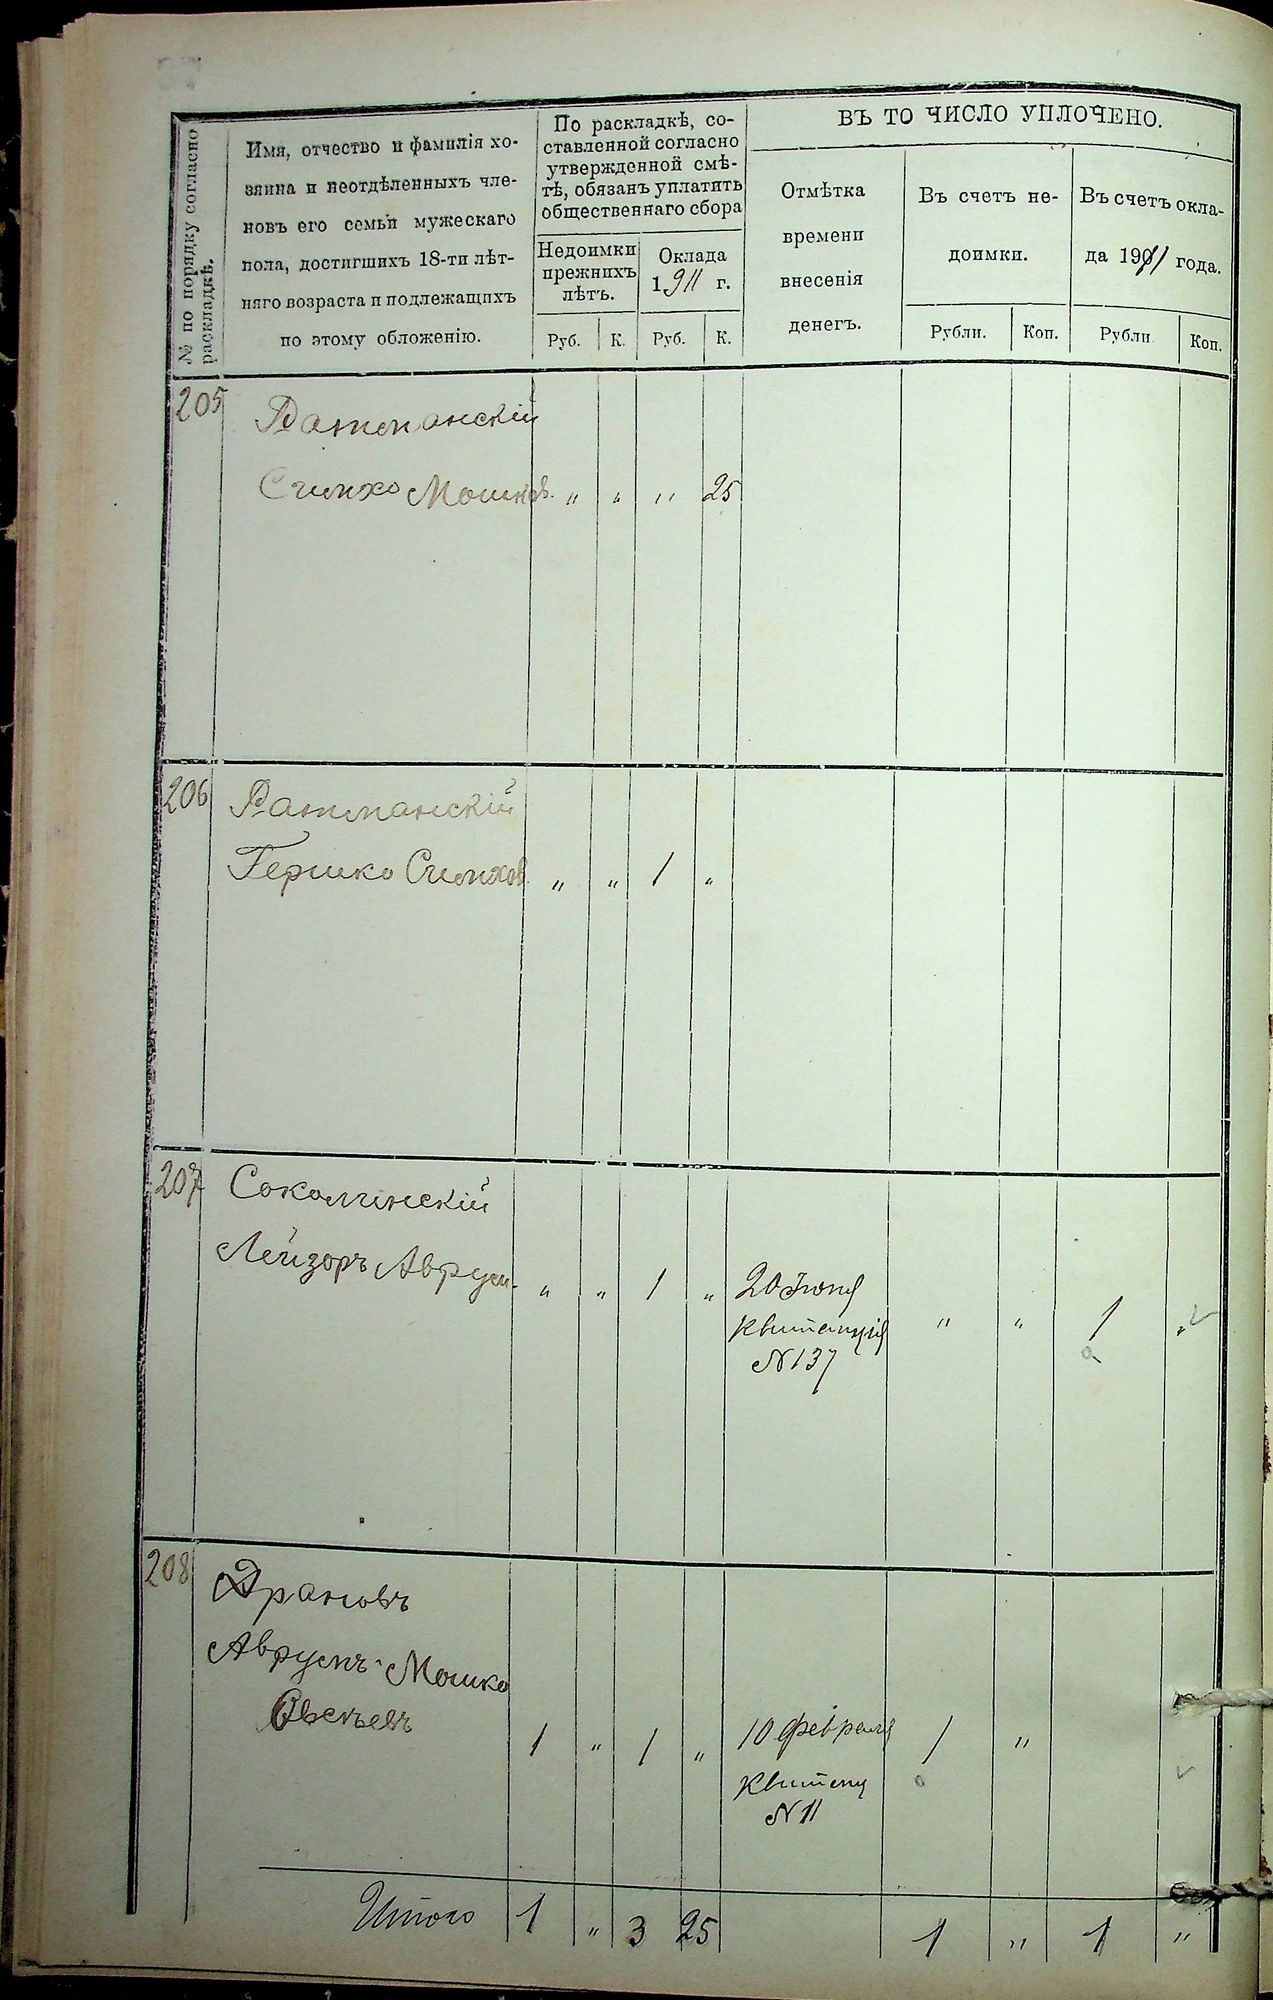 № по порядку согласно
раскладкѣ.
Имя, отчество и фамилія хо-
зяина и неотдѣленныхъ чле-
новъ его семьи мужескаго
пола, достигшихъ 18-ти лѣт-
няго возраста и подлежащихъ
по этому обложенію.
По раскладкѣ, со-
ставленной согласно
утвержденной смѣ-
тѣ, обязанъ уплатить
общественнаго сбора
Недоимки
прежнихъ
лѣтъ.
Оклада
1911 г.
Руб. К. Руб. К.
ВЪ ТО ЧИСЛО УПЛОЧЕНО.
Отмѣтка
времени
внесенія
денегъ.
Въ счетъ не-
доимки.
Въ счетъ окла-
да 1911 года.
Рубли. Коп. Рубли Коп.
205 Ратманскій
Симхо Мошков. " " " 25
206 Ратманскій
Гершко Симхов. " " 1 "
207 Соколинскій
Лейзоръ Аврум. " " 1 " 20 Іюня " " 1 "
Квитанція
N 137
208 Драновъ
Аврумъ-Мошко
1 " 1 " 10 февраля 1 "
Квитанц
N 11
Итого 1 " 3 25 1 " 1 "